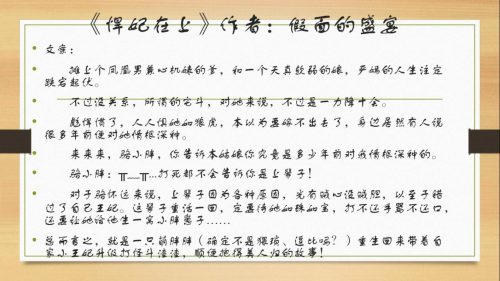 《悍妃在上》作者:假面的盛宴
文案:
摊上个凤凰男兼心机婊的爹,和一个天真软弱的娘,严嫣的人生注定
跌宕起伏。
不过没关系,所谓的宅斗,对她来说,不过是一力降十会。
彪悍惯了,人人惧她如狼虎,本以为要嫁不出去了,身边居然有人说
很多年前便对她情根深种。
来来来,骆小胖,你告诉本姑娘你究竟是多少年前对我情根深种的。
骆小胖:╥﹏╥...打死都不会告诉你是上辈子!
对于骆怀远来说,上辈子因为各种原因,光有贼心没贼胆,以至于错
过了自己王妃。这辈子重活一回,定要待她如珠如宝,打不还手骂不还口,
还要让她给他生一窝小胖崽子......
总而言之,就是一只萌胖胖(确定不是猥琐、逗比吗?)重生回来带着自
家小王妃升级打怪斗渣渣,顺便抱得美人归的故事!